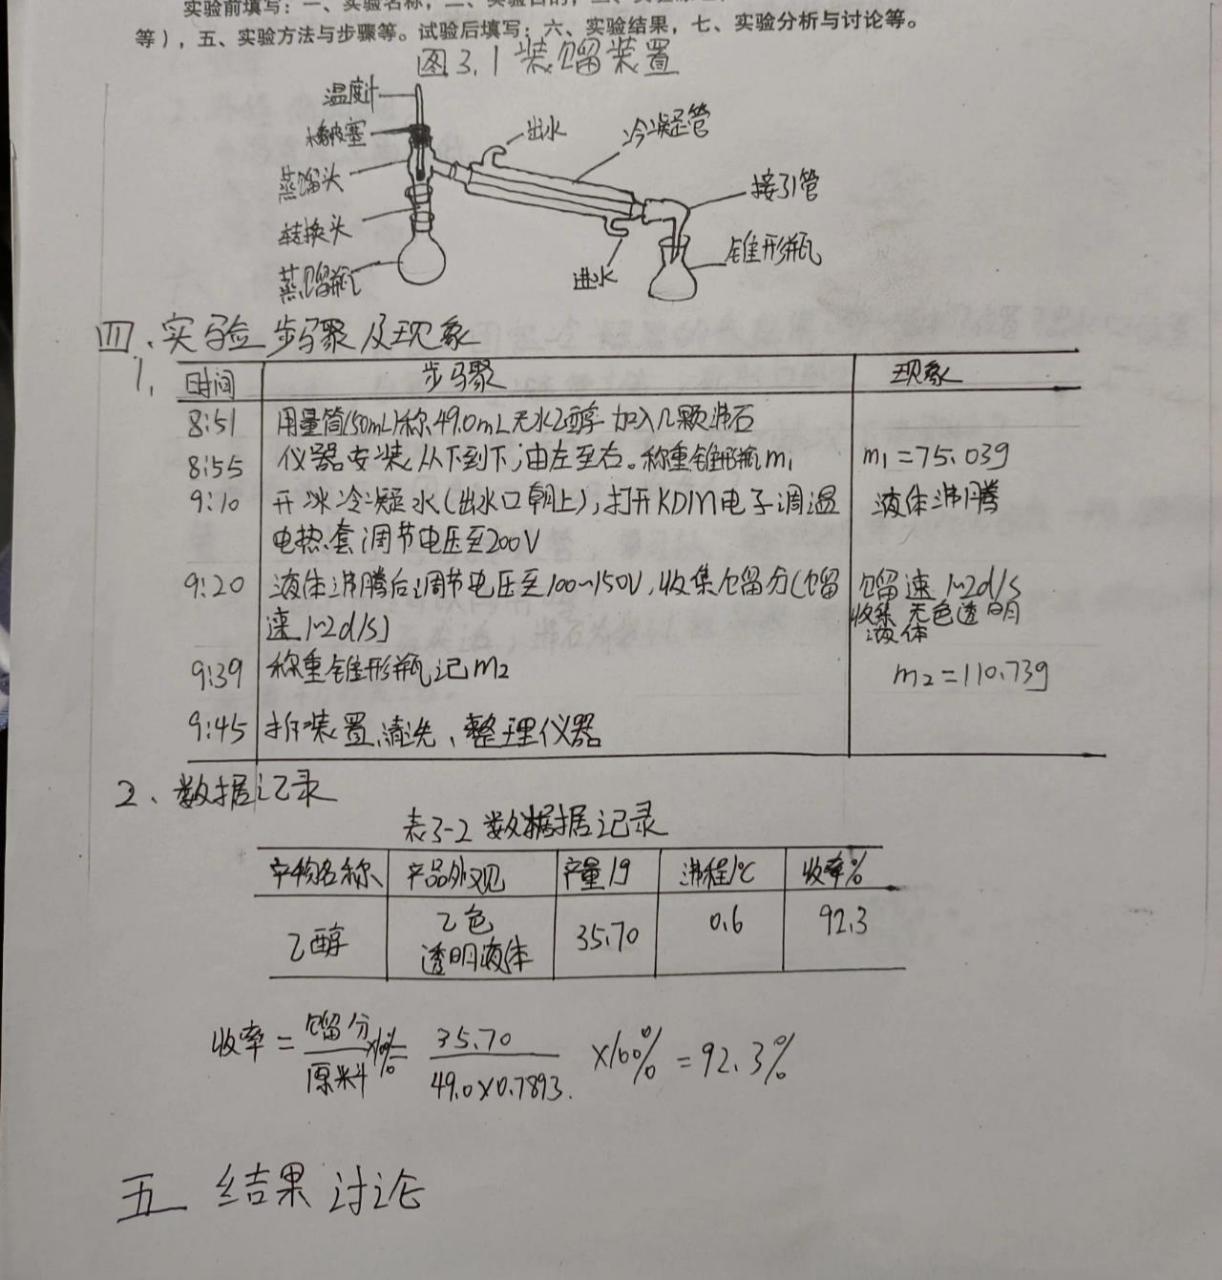 实验前填写：一、实验名称，二、实验目的，三、实验原理
等），五、实验方法与步骤等。试验后填写：六、实验结果，七、实验分析与讨论等。
图3.1 装馏装置
温度计
橡皮塞
蒸馏头
转换头
蒸馏瓶
出水
冷凝管
接引管
进水
锥形瓶
四、实验步骤及现象
1、
时间 步骤 现象
8:51 用量筒(50mL)称49.0mL无水乙醇 加入几颗沸石
8:55 仪器安装 从下到下;由左至右。称重锥形瓶m₁ m₁=75.03g
9:10 开冰冷凝水(出水口朝上),打开KDM电子调温 液体沸腾
电热套调节电压至200V
9:20 液体沸腾后调节电压至100~150V,收集馏分(馏 馏速1~2d/s
速1~2d/s) 收集 无色透明
液体
9:39 称重锥形瓶记m₂ m₂=110.73g
9:45 拆装置、清洗、整理仪器
2、数据记录
表3-2 数据据记录
产物名称 产品外观 产量/g 沸程/℃ 收率%
乙醇 乙色 35.70 0.6 92.3
透明液体
收率=馏分/原料×100%=35.70/49.0×0.7893. ×100%=92.3%
五 结果讨论